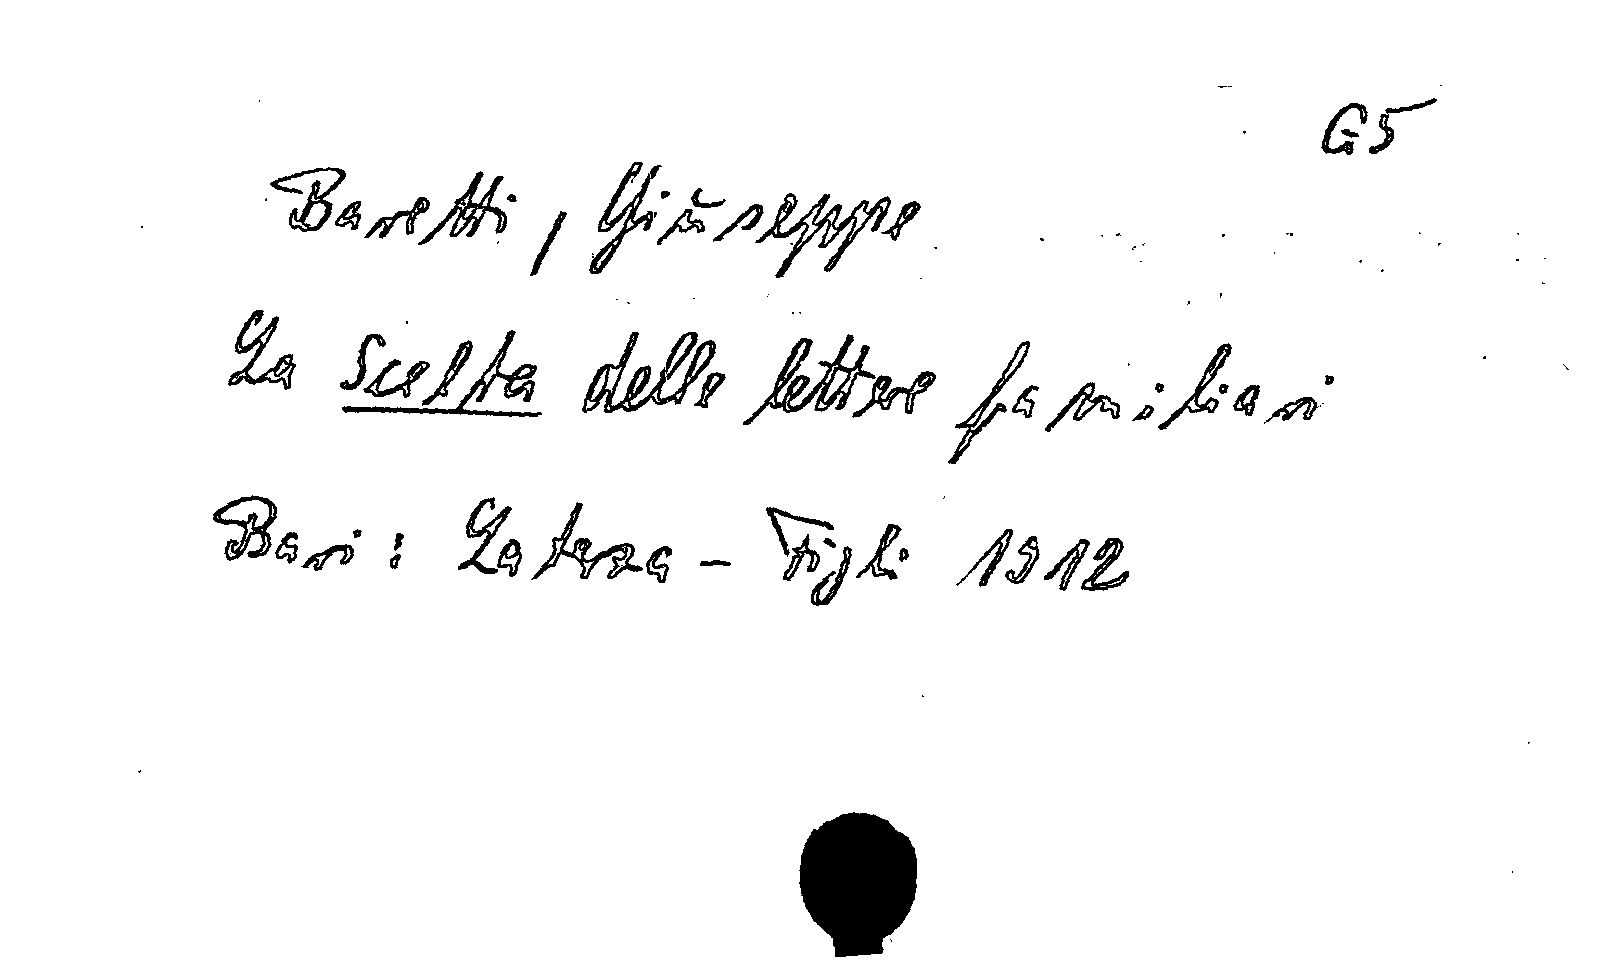 G5
Baretti, Giuseppe
La Scelta delle lettere familiari
Bari: Laterza - Figli 1912